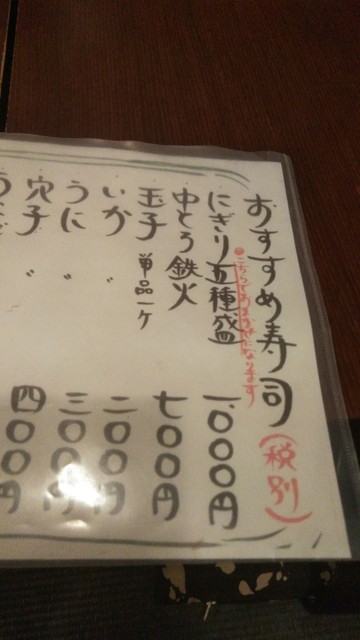 おすすめ寿司(税別)
※こちらでおまかせになります
にぎり五種盛 一、〇〇〇円
中とろ鉄火 七〇〇円
玉子 単品一ケ
いか 〃 二〇〇円
うに 〃 三〇〇円
穴子 〃 四〇〇円